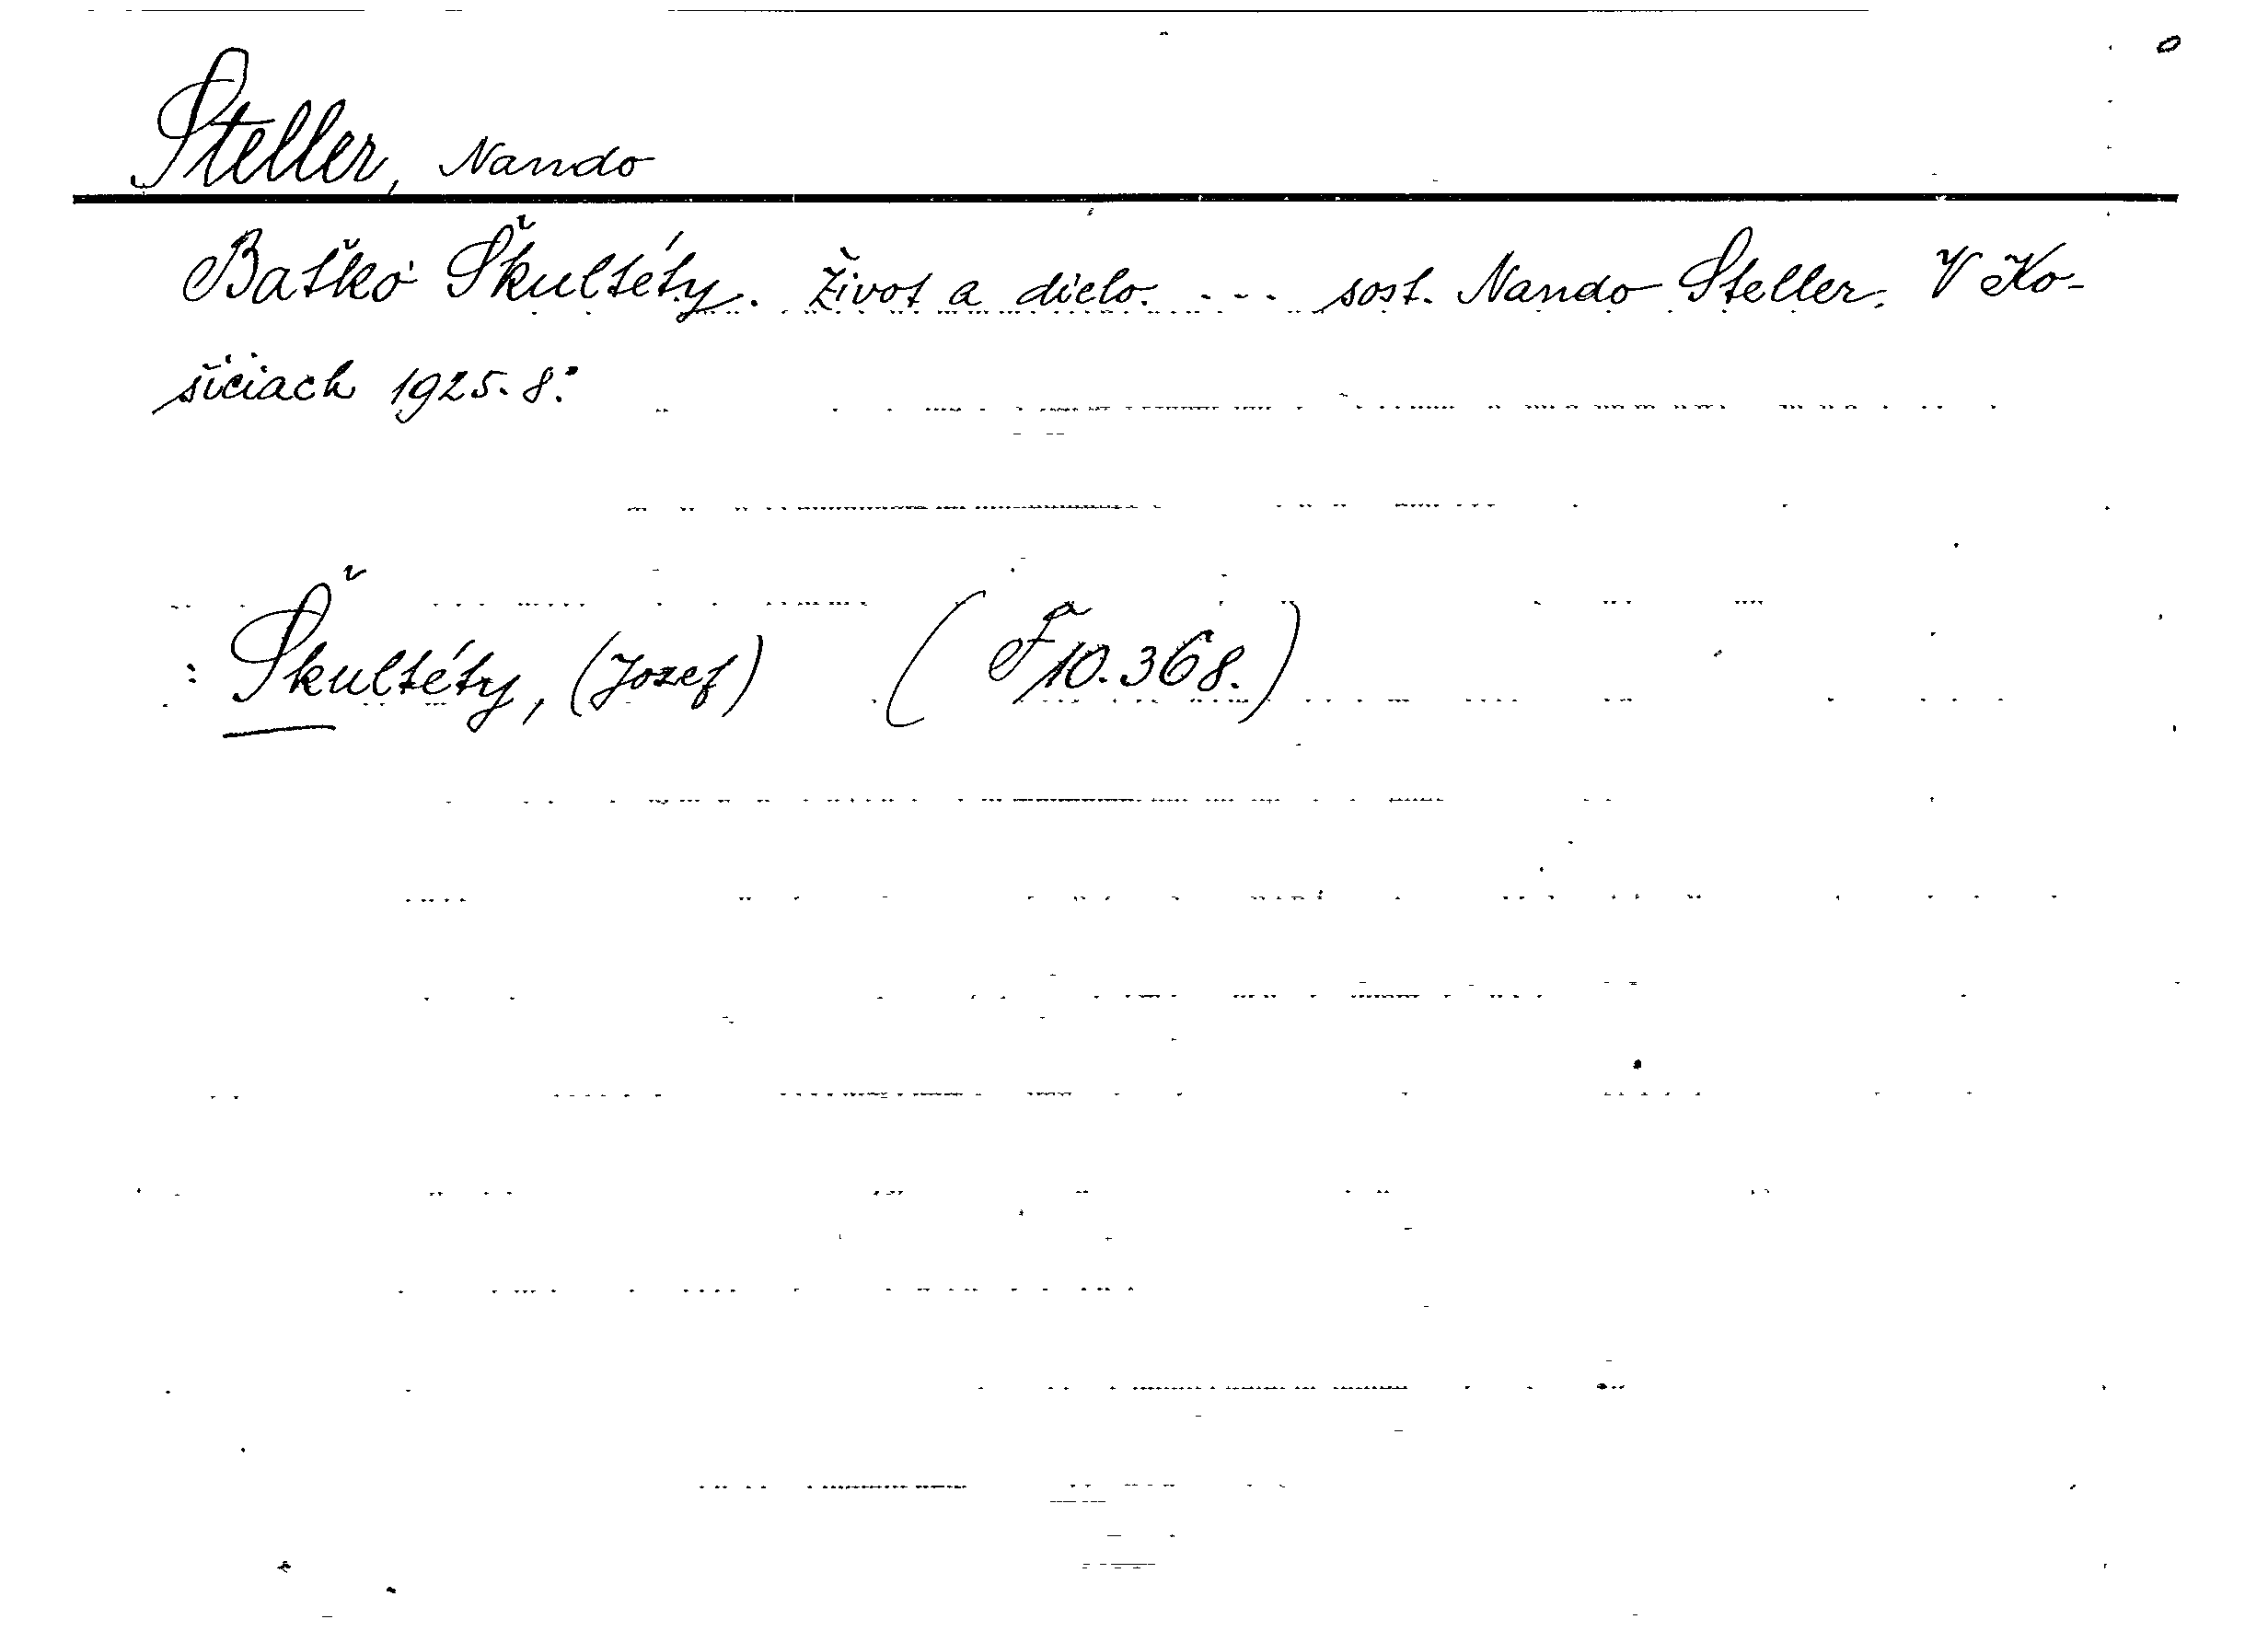 Steller, Nando
Baťko Škultéty. Život a dielo. ... sost. Nando Steller. V Ko-
šiciach 1925. 8.°
: Škultéty, (Jozef) (F 10.368.)